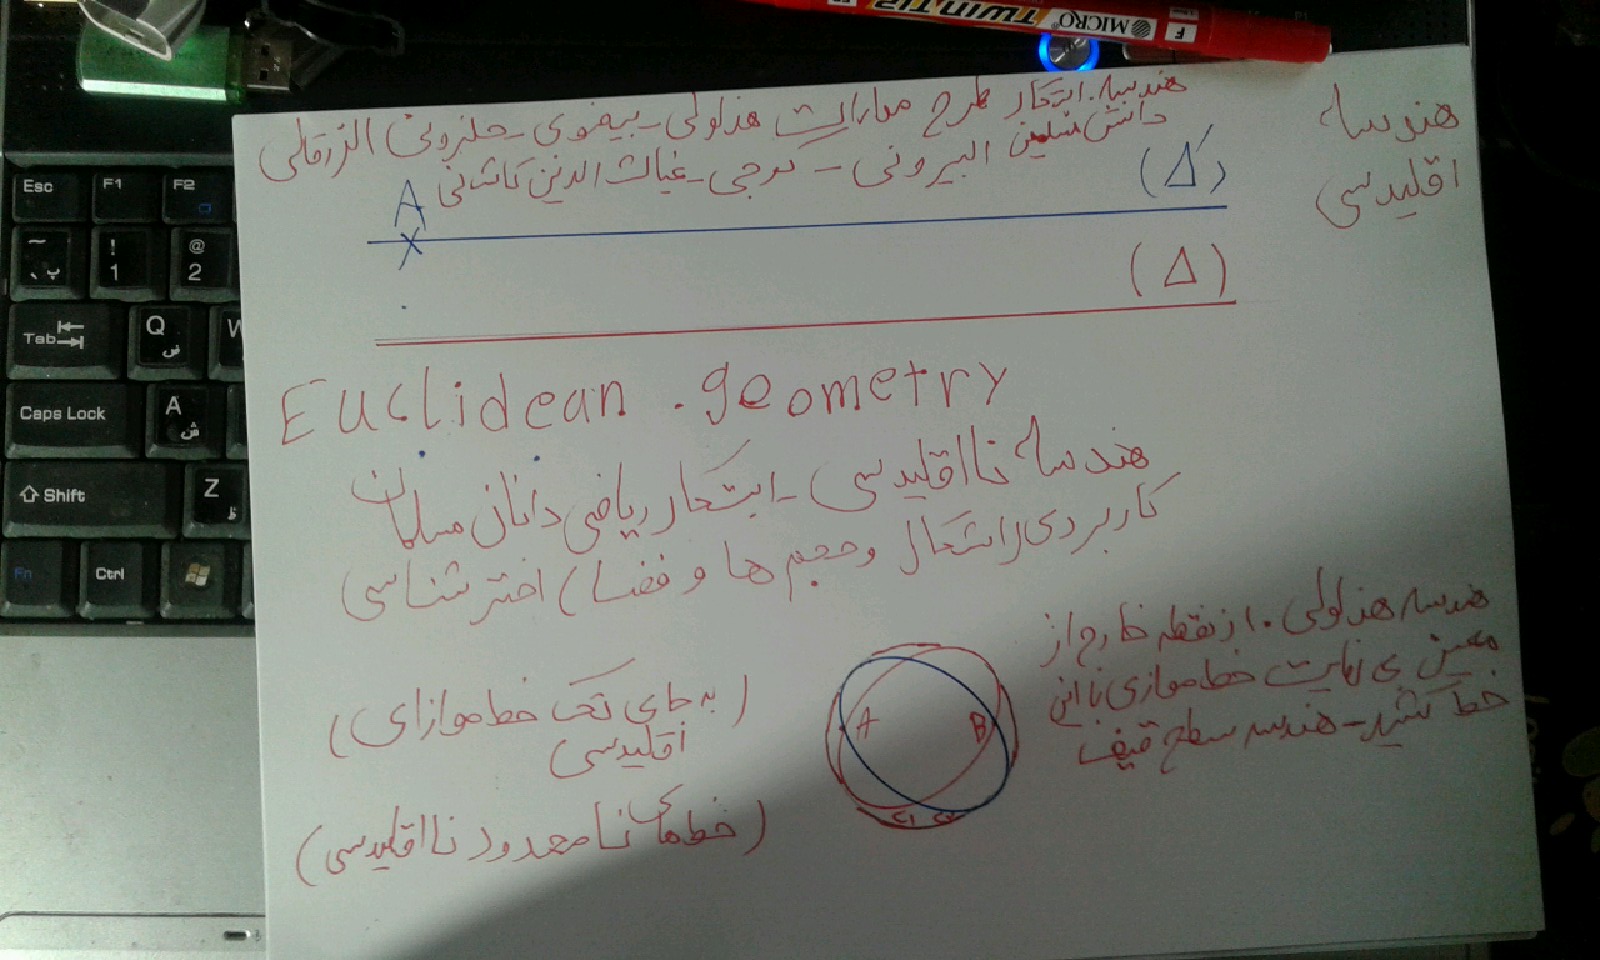 MICRO TWIN TIP
F
هندسه ابتکار طرح مدارات هذلولی - بیضوی - حلزونی الزرقالی
دانش البیرونی - کرجی - غیاث الدین کاشانی
هندسه
اقلیدسی
A
(Δ')
X
(Δ)
Euclidean . geometry
هندسه نااقلیدسی - ابتکار ریاضی دانان مسلمان
کاربردی (اشکال وحجم ها و فضا) اختر شناسی
هندسه هذلولی . از نقطه خارج از
معین بی نهایت خط موازی با این
خط کشید - هندسه سطح قیف
A B
(به جای تک خط موازای
اقلیدسی)
(خط های نامحدود نااقلیدسی)
Esc F1 F2
~ ! 1 @ 2
Tab Q ض W
Caps Lock A ش
Shift Z ظ
Fn Ctrl